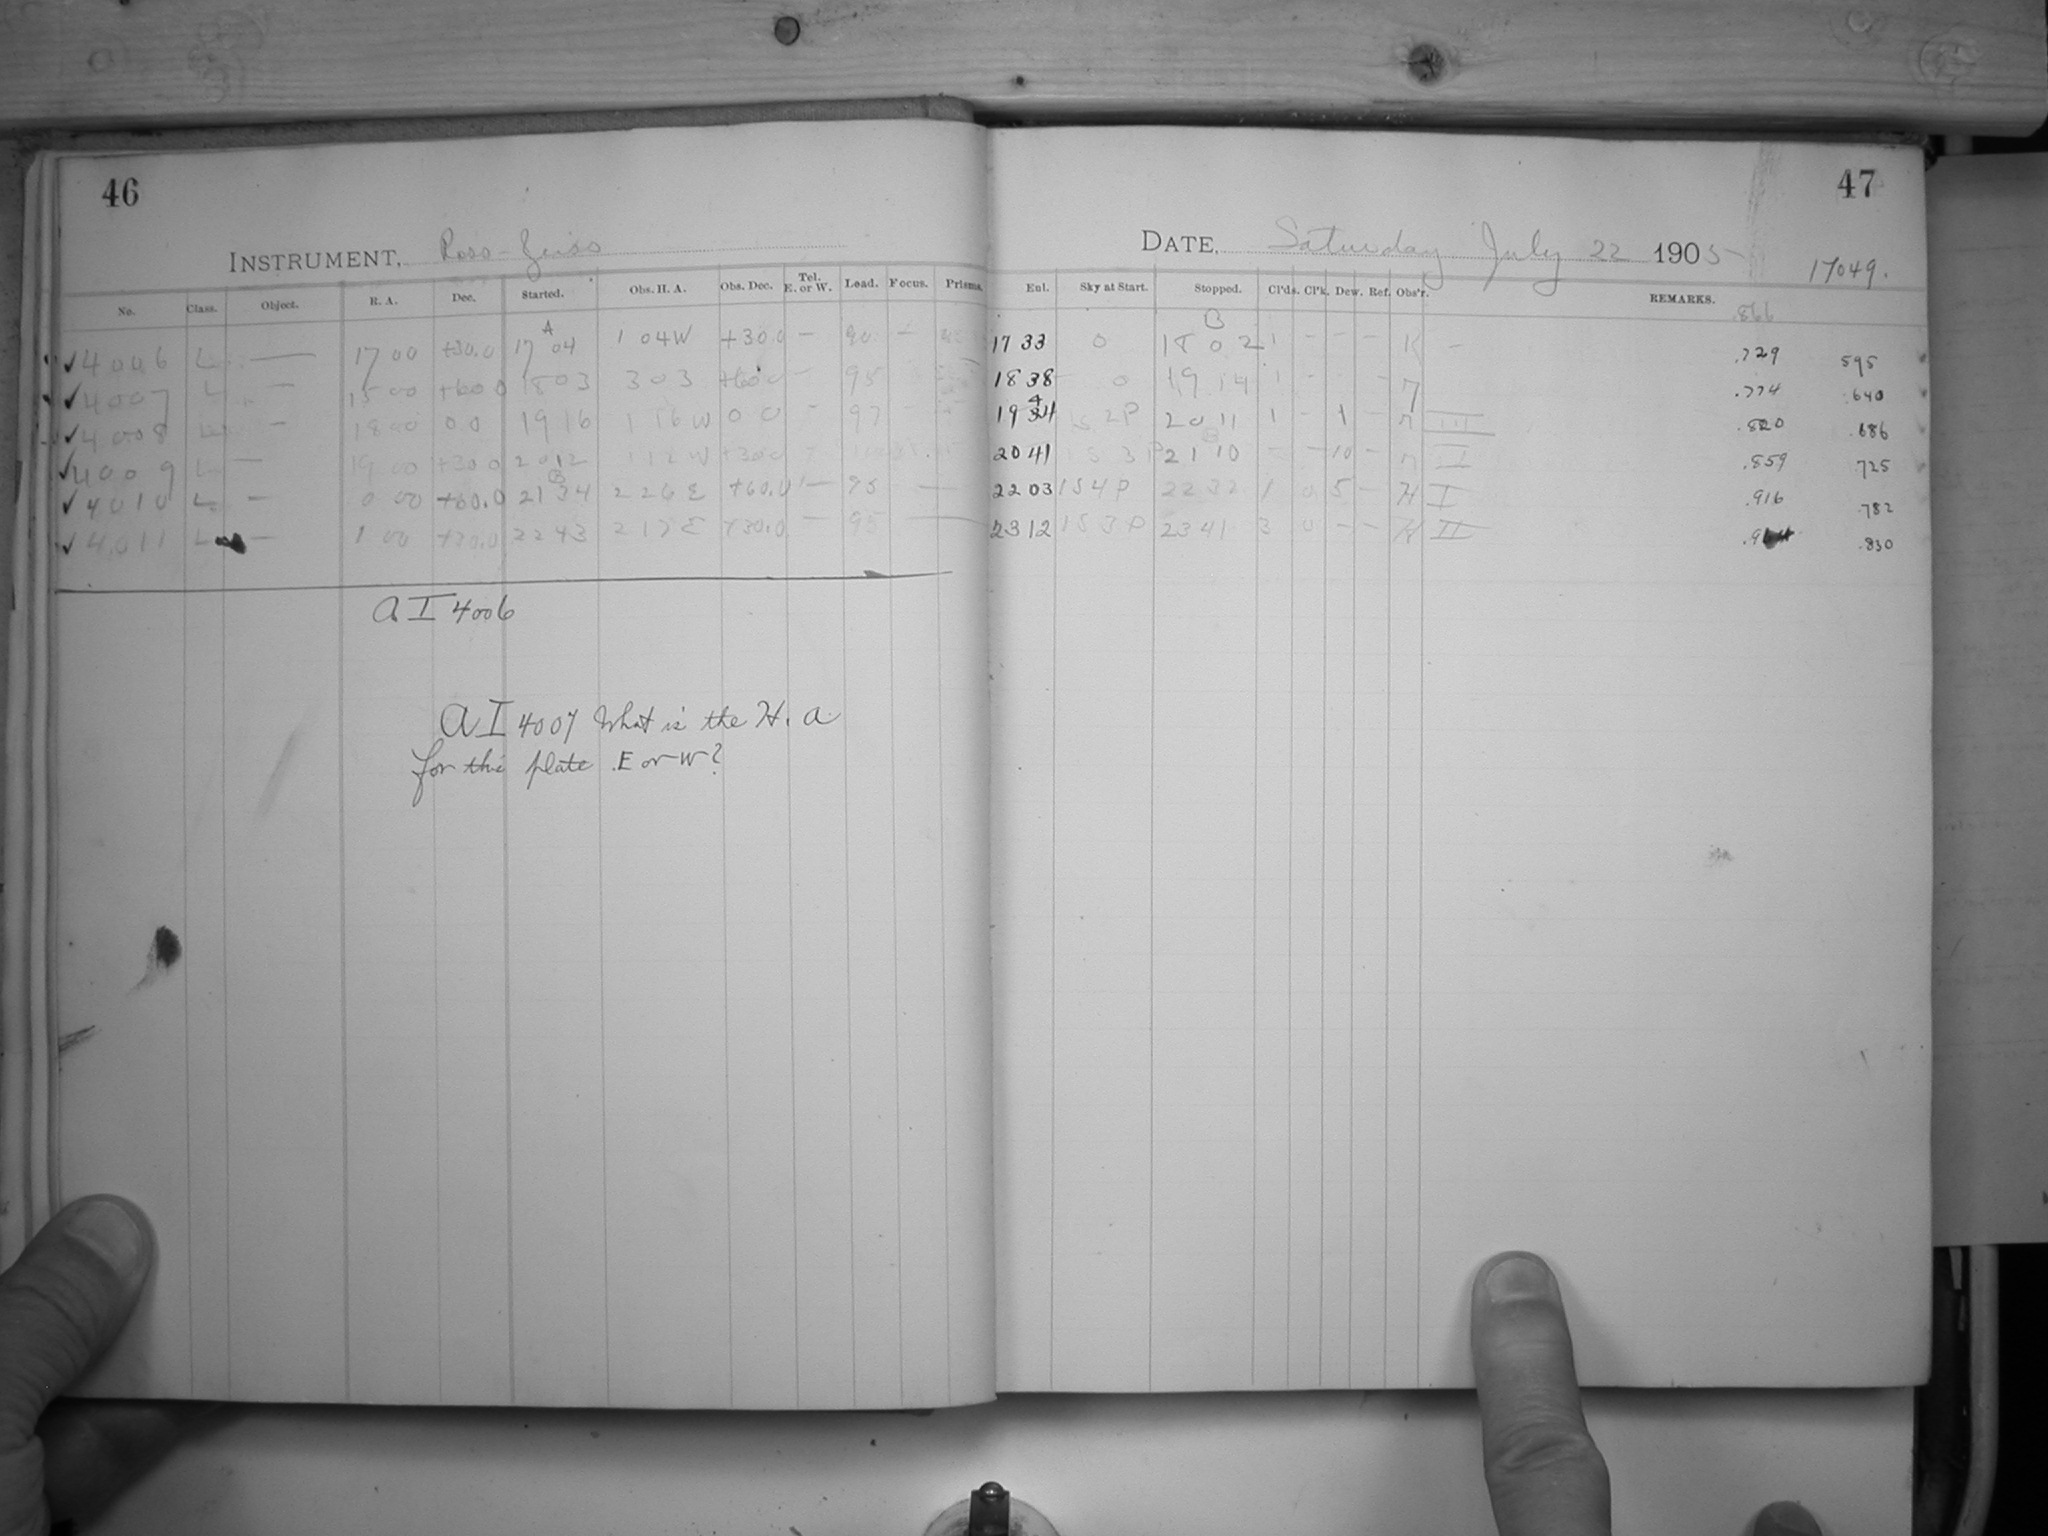 46
INSTRUMENT, Ross-Zeiss
No. Class. Object. R. A. Dec. Started. Obs. H. A. Obs. Dec. Tel. E. or W. Lead. Focus. Prisms.
✓4006 L — 17 00 +30.0 17 04 1 04W +30.0 — 90
✓4007 L — 15 00 +60 0 1803 3 03 — 95
✓4008 L — 18 00 0 0 19 16 1 16 W 0 0 — 97
✓4009 L — 19 00 +30 0 2012 1 12 W +30 0
✓4010 L — 0 00 +60.0 21 34 2 26 E +60.0 — 95 —
✓4011 L — 1 00 +30.0 2243 2 17 E +30.0 — 95 —
A I 4006
A I 4007 What is the H. A.
for this plate E or W?
47
DATE, Saturday July 22 1905
17049.
Enl. Sky at Start. Stopped. Cl'ds. Cl'k. Dew. Ref. Obs'r. REMARKS.
.866
17 33 0 18 02 1 - - - K - .729 595
18 38 0 19 14 1 - .774 .640
19 34 1S 2P 20 11 1 - 1 - III .820 .686
20 41 1S 3P 21 10 - - 10 - I .859 .725
22 03 1S4P 22 32 1 0 5 - H I .916 .782
23 12 1S 3P 23 41 3 0 - - H II .830